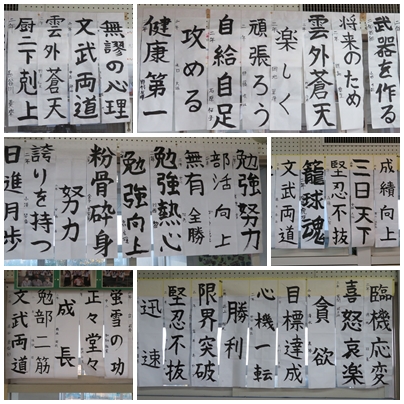 無謬の心理
文武両道
雲外蒼天
厨二下剋上
武器を作る
将来のため
雲外蒼天
頑張ろう
楽しく
自給自足
攻める
健康第一
勉強努力
部活向上
無有全勝
勉強熱心
勉強向上
粉骨砕身
努力
誇りを持つ
日進月歩
成績向上
三日天下
堅忍不抜
籠球魂
文武両道
蛍雪の功
正々堂々
成長
勉部二筋
文武両道
臨機応変
喜怒哀楽
貪欲
目標達成
心機一転
勝利
限界突破
堅忍不抜
迅速